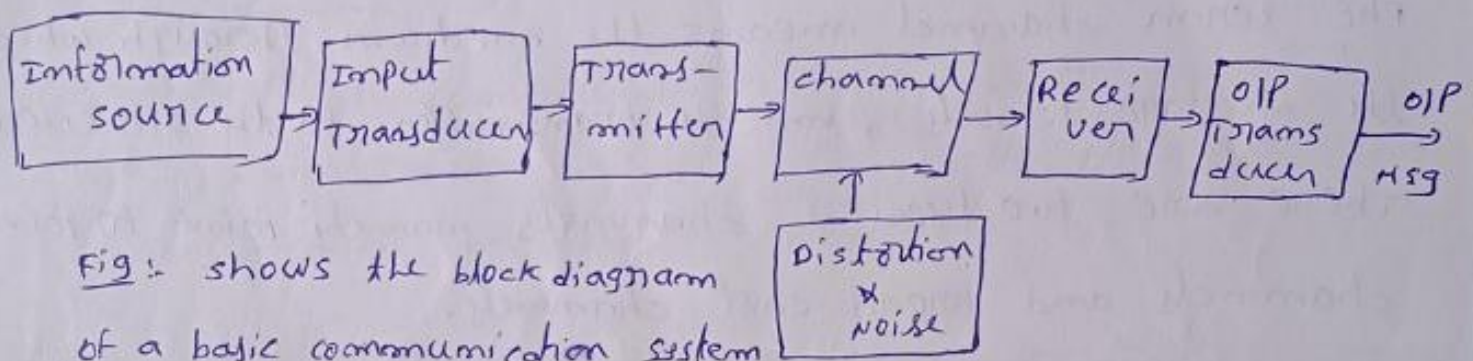 Information
source
Input
Transducer
Trans-
mitter
channel
Recei
ver
O/P
Trans
ducer
O/P
Msg
Distortion
&
Noise
Fig :- shows the block diagram
of a basic communication system